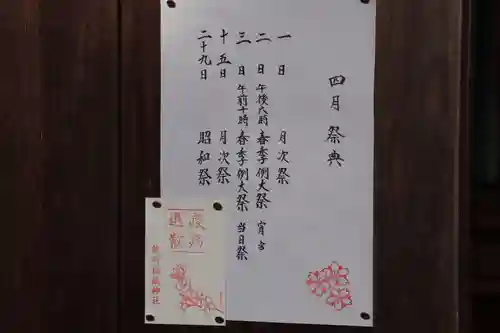 四月祭典
一日 月次祭
二日 午後六時 春季例大祭 宵宮
三日 午前十時 春季例大祭 当日祭
十五日 月次祭
二十九日 昭和祭
疫病
退散
稲荷神社